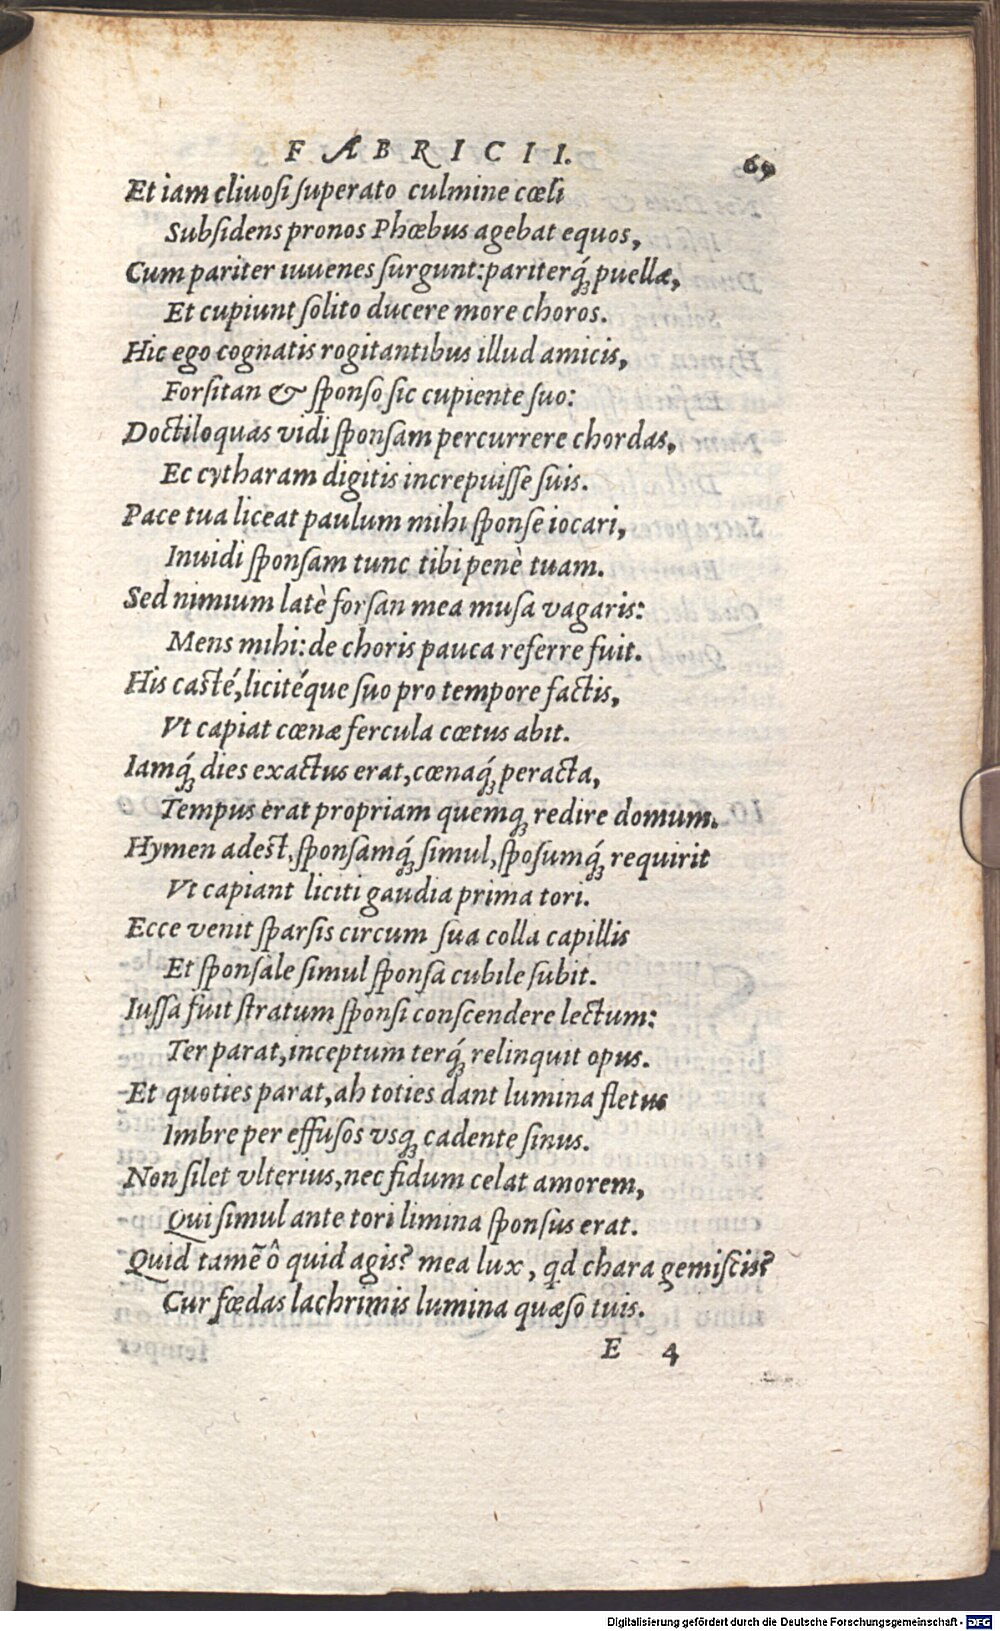 FABRICII. 69
Et iam cliuosi superato culmine cœli
Subsidens pronos Phœbus agebat equos,
Cum pariter iuuenes surgunt: pariterq́; puellæ,
Et cupiunt solito ducere more choros.
Hic ego cognatis rogitantibus illud amicis,
Forsitan & sponso sic cupiente suo:
Doctiloquas vidi sponsam percurrere chordas,
Ec cytharam digitis increpuisse suis.
Pace tua liceat paulum mihi sponse iocari,
Inuidi sponsam tunc tibi penè tuam.
Sed nimium latè forsan mea musa vagaris:
Mens mihi: de choris pauca referre fuit.
His casté, licitéque suo pro tempore factis,
Vt capiat cœnæ fercula cœtus abit.
Iamq́; dies exactus erat, cœnaq́; peracta,
Tempus erat propriam quemq; redire domum.
Hymen adest, sponsamq́; simul, sposumq́; requirit
Vt capiant liciti gaudia prima tori.
Ecce venit sparsis circum sua colla capillis
Et sponsale simul sponsa cubile subit.
Iussa fuit stratum sponsi conscendere lectum:
Ter parat, inceptum terq́; relinquit opus.
Et quoties parat, ah toties dant lumina fletus
Imbre per effusos vsq; cadente sinus.
Non silet vlterius, nec fidum celat amorem,
Qui simul ante tori limina sponsus erat.
Quid tamē ô quid agis? mea lux, qd chara gemiscis?
Cur fœdas lachrimis lumina quæso tuis.
E 4
Digitalisierung gefördert durch die Deutsche Forschungsgemeinschaft - DFG